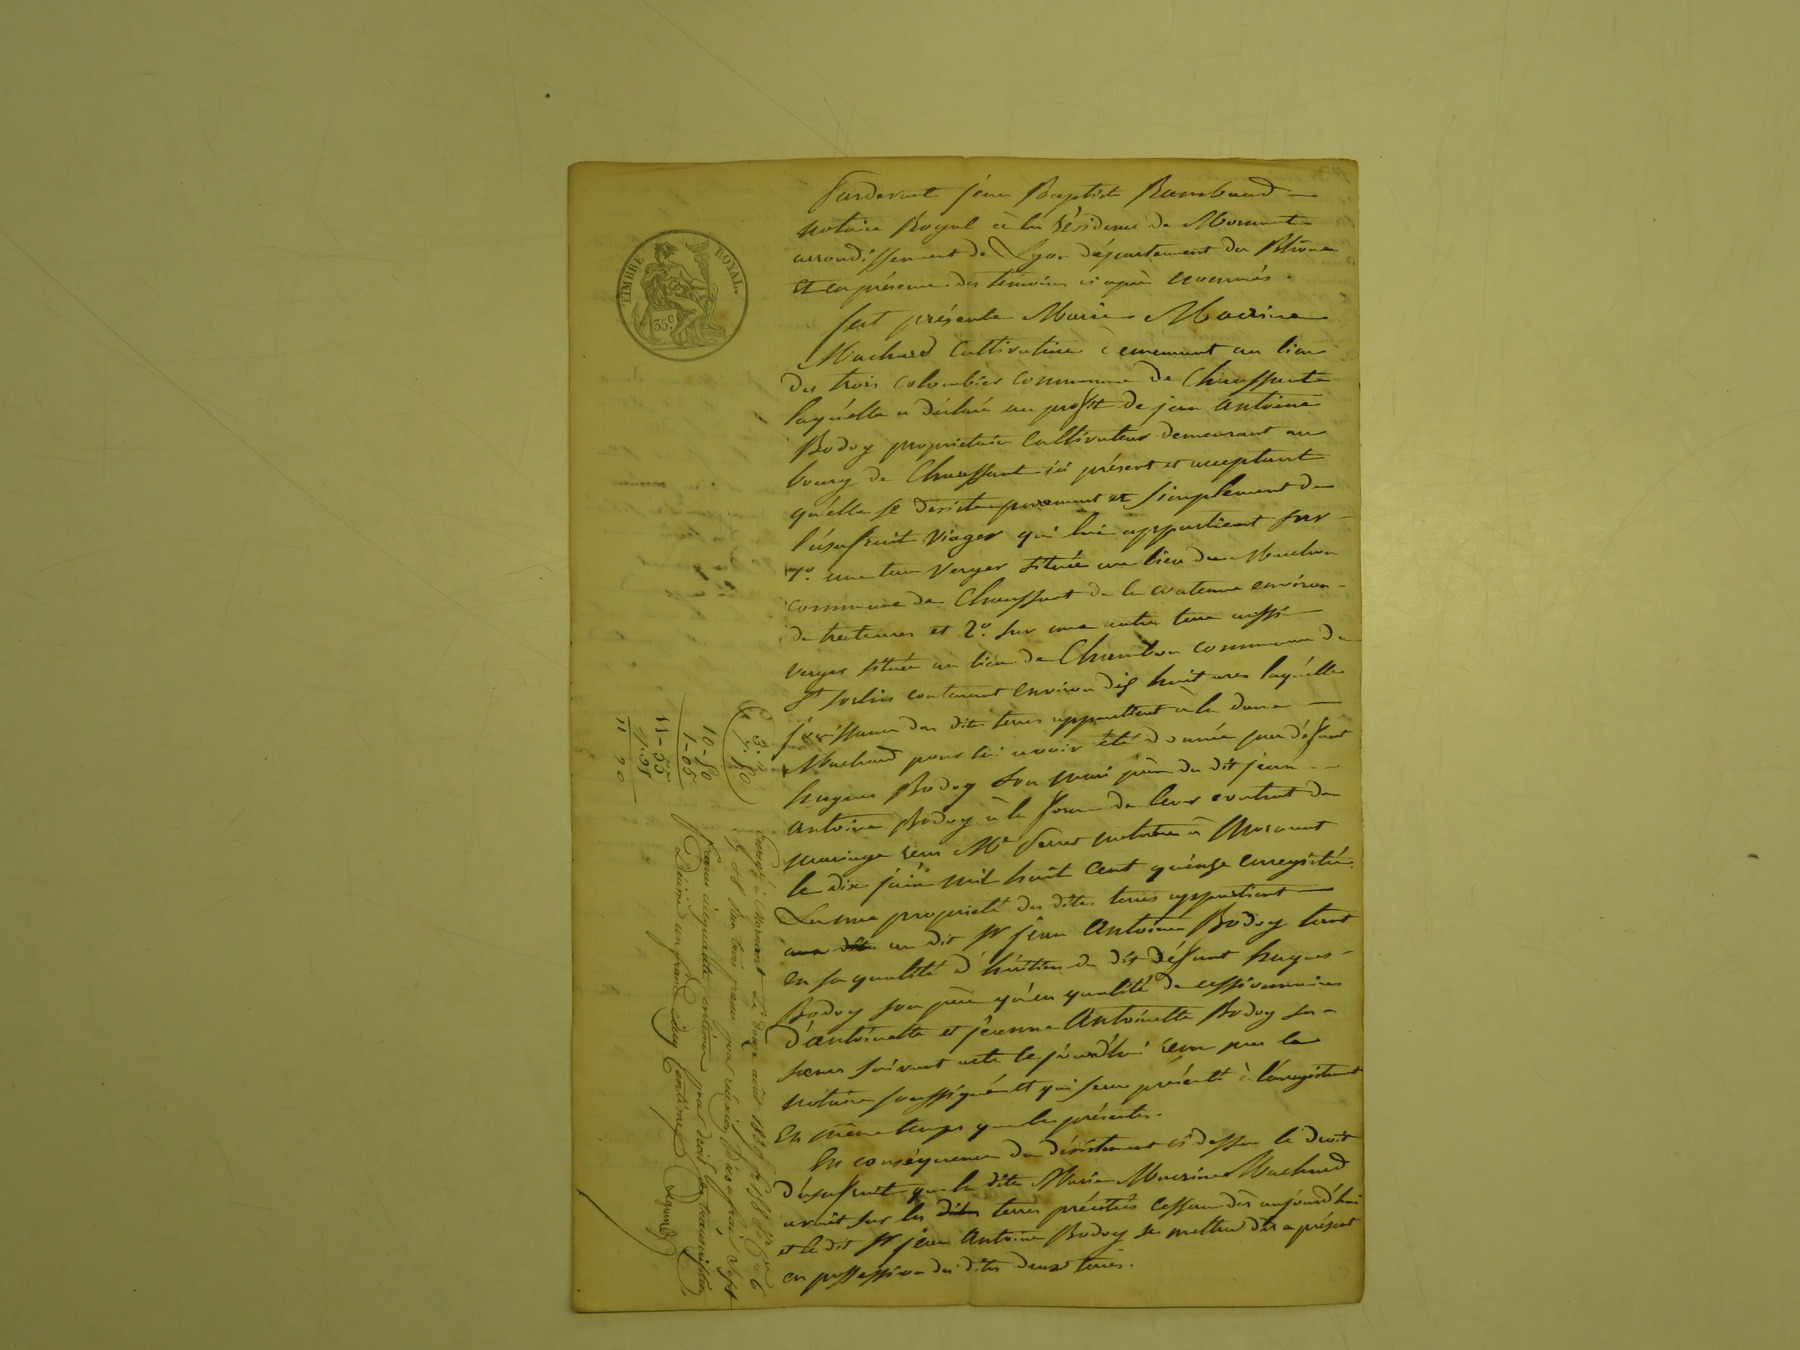 TIMBRE ROYAL
35c.
Pardevant jean Baptiste Rambaud
notaire Royal à la résidence de Mornant
arrondissement de Lyon département du Rhône
et en présence des témoins ci après nommés.
fut présente Marie
Machard Cultivatrice demeurant au lieu
des trois colombier commune de Chaussant
laquélle a déclaré au profit de jean antoine
Bodoy proprietaire Cultivateur demeurant au
bourg de Chaussant ici présent et acceptant
quélle se désiste purement et simplement de
l'úsufruit viager qui lui appartient sur
1º. une terre verger située au lieu du
commune de Chaussant de la contenue environ
de ares et 2º. sur une autre terre aussi
verger située au lieu de Chambon commune de
St Sorlin contenant environ dix huit ares laquélle
jouissance des dites terres appartient à la dame
Machard pour lui avoir été donnée par défunt
hugues Bodoy son mari père du dit jean
antoine Bodoy à la forme de leur contrat de
mariage reçu Me notaire à Mornant
le dix juin mil huit Cent quinze enregistré.
La nue propriété des dites terres appartient
au dit Sr jean Antoine Bodoy tant
en sa qualité d'héritier du dit défunt hugues
Bodoy son père qu'en qualité de cessionnaire
d'antoinette et jeanne Antoinette Bodoy ses
sœurs suivant acte cejourd'hui reçu par le
notaire soussigné et qui sera présenté à l'enregistrement
en même temps que les présentes.
En conséquence du désistement ci dessus le droit
d'úsufruit que la dite Marie Machard
avait sur les terres précitées cessera dès aujourd'hui
et le dit Sr jean Antoine Bodoy se mettra dès a présent
en possession des dites deux terres.
10-50
1-05
11-55
11 90
Enregistré à Mornant Le douze août 1839
reçu sept
francs cinquante centimes pour droit de transcription
Décime un franc cinq Centimes